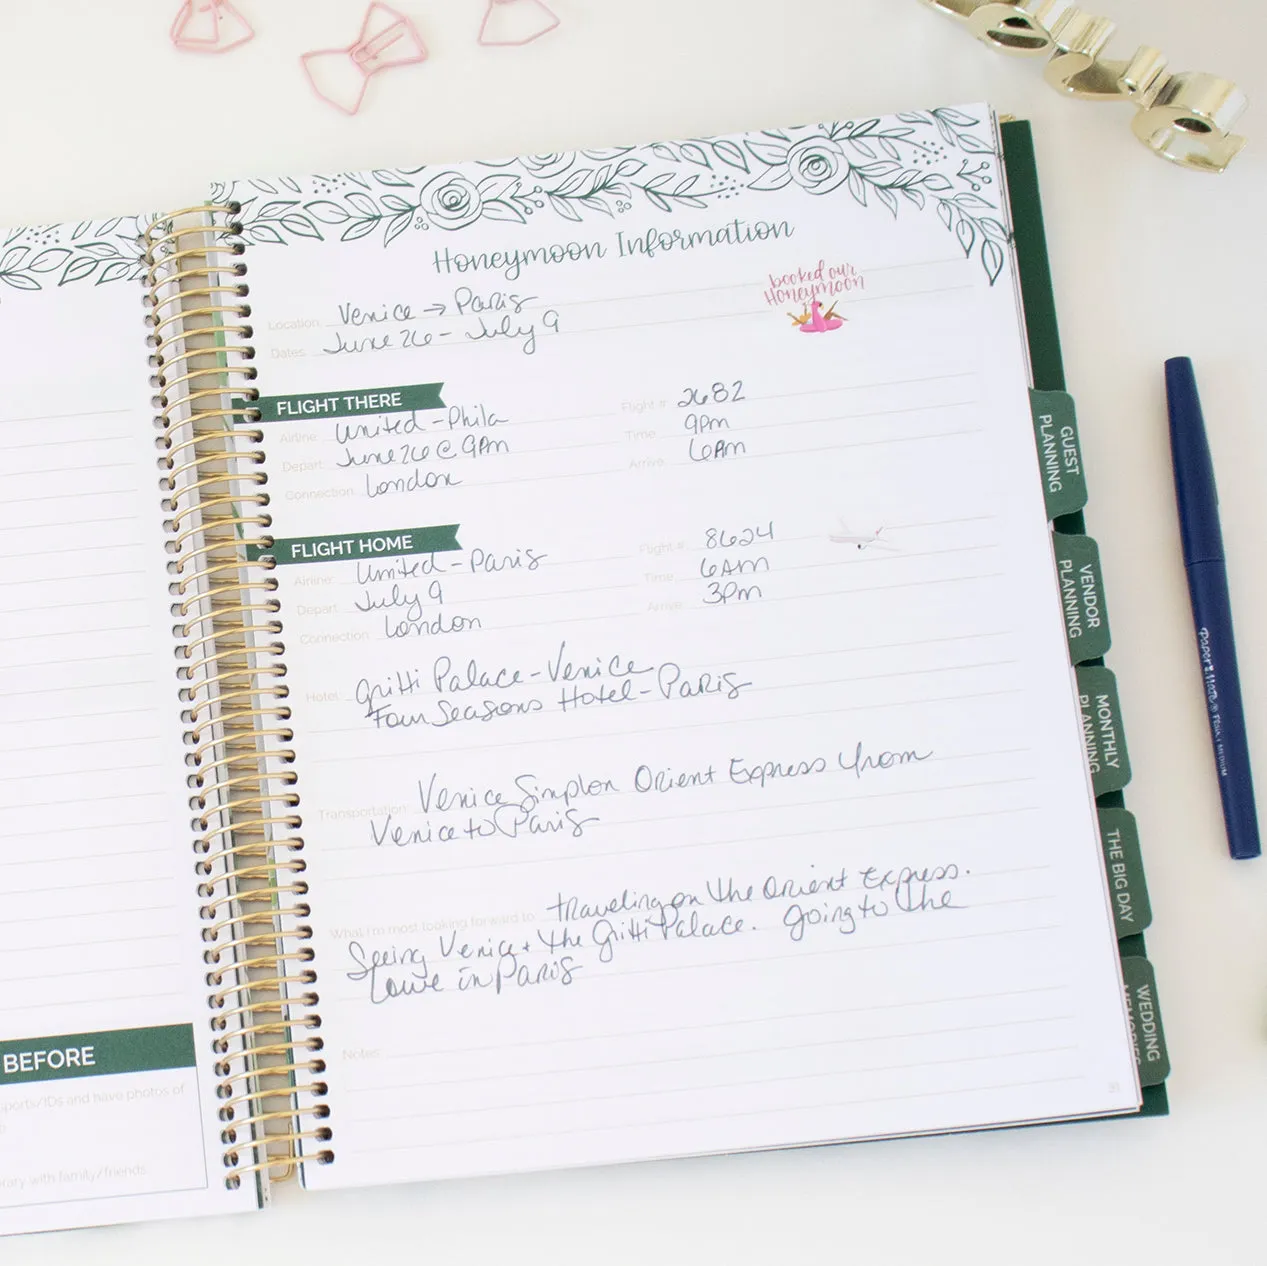 Honeymoon Information
booked our
Honeymoon
Location: Venice → Paris
Dates: June 26 - July 9
FLIGHT THERE
Airline: United - Phila Flight #: 2682
Depart: June 26 @ 9pm Time: 9pm
Connection: London Arrive: 6Am
FLIGHT HOME
Airline: United - Paris Flight #: 8624
Depart: July 9 Time: 6Am
Connection: London Arrive: 3pm
Hotel: Gritti Palace - Venice
Four Seasons Hotel - Paris
Transportation: Venice Simplon Orient Express from
Venice to Paris
What I'm most looking forward to: traveling on the Orient Express.
Seeing Venice + the Gritti Palace. Going to the
Louve in Paris
Notes:
BEFORE
ports/IDs and have photos of
rary with family/friends
GUEST
PLANNING
VENDOR
PLANNING
MONTHLY
PLANNING
THE BIG DAY
WEDDING
MEMORIES
Paper Mate® Flair MEDIUM